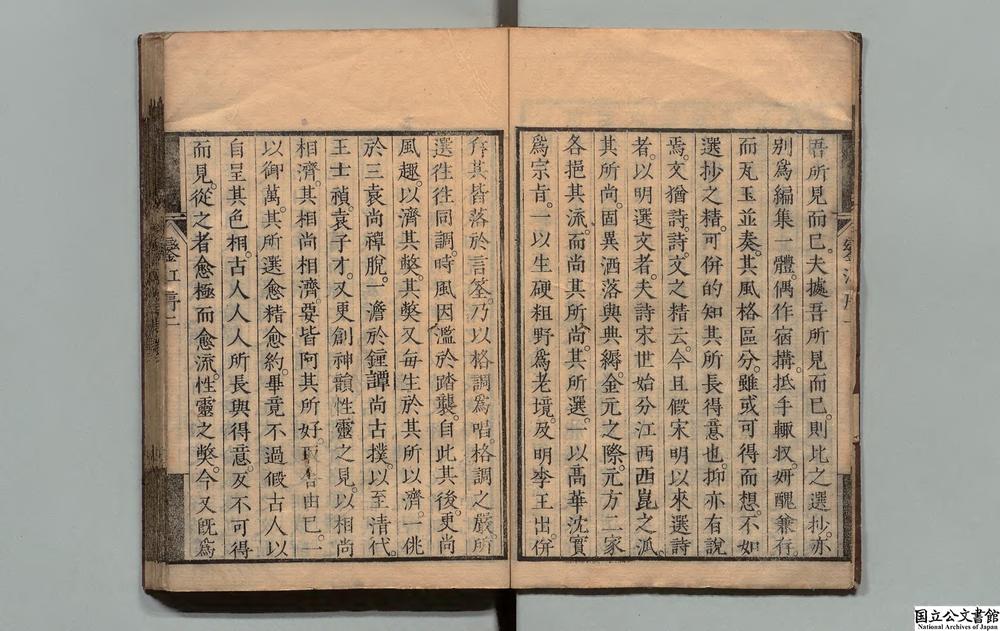 吾所見而已。夫據吾所見而已。則比之選抄。亦
別爲編集一體。偶作宿搆。抵手輙收。妍醜兼存。
而瓦玉並奏。其風格區分。雖或可得而想。不如
選抄之精。可併的知其所長得意也。抑亦有說
焉。文猶詩。詩。文之精云。今且假宋明以來選詩
者。以明選文者。夫詩宋世始分江西西崑之派。
其所尚。固異洒落與典縟。金元之際。元方二家
各挹其流。而尚其所尚。其所選一以高華沈實
爲宗旨。一以生硬粗野爲老境。及明李王出。併
弃其皆落於言筌。乃以格調爲唱。格調之嚴。所
選徃徃同調。時風因濫於踏襲。自此其後。更尚
風趣。以濟其獘。其獘又每生於其所以濟。一佻
於三袁尚禪脫。一澹於鐘譚尚古撲。以至清代。
王士禎。袁子才。又更創神韻性靈之見。以相尚
相濟。其相尚相濟。要皆阿其所好。取舍由已。一
以御萬。其所選愈精愈約。畢竟不過假古人以
自呈其色相。古人人人所長與得意。反不可得
而見。從之者愈極而愈流。性靈之獘。今又既爲
江序一
江序二
国立公文書館
National Archives of Japan